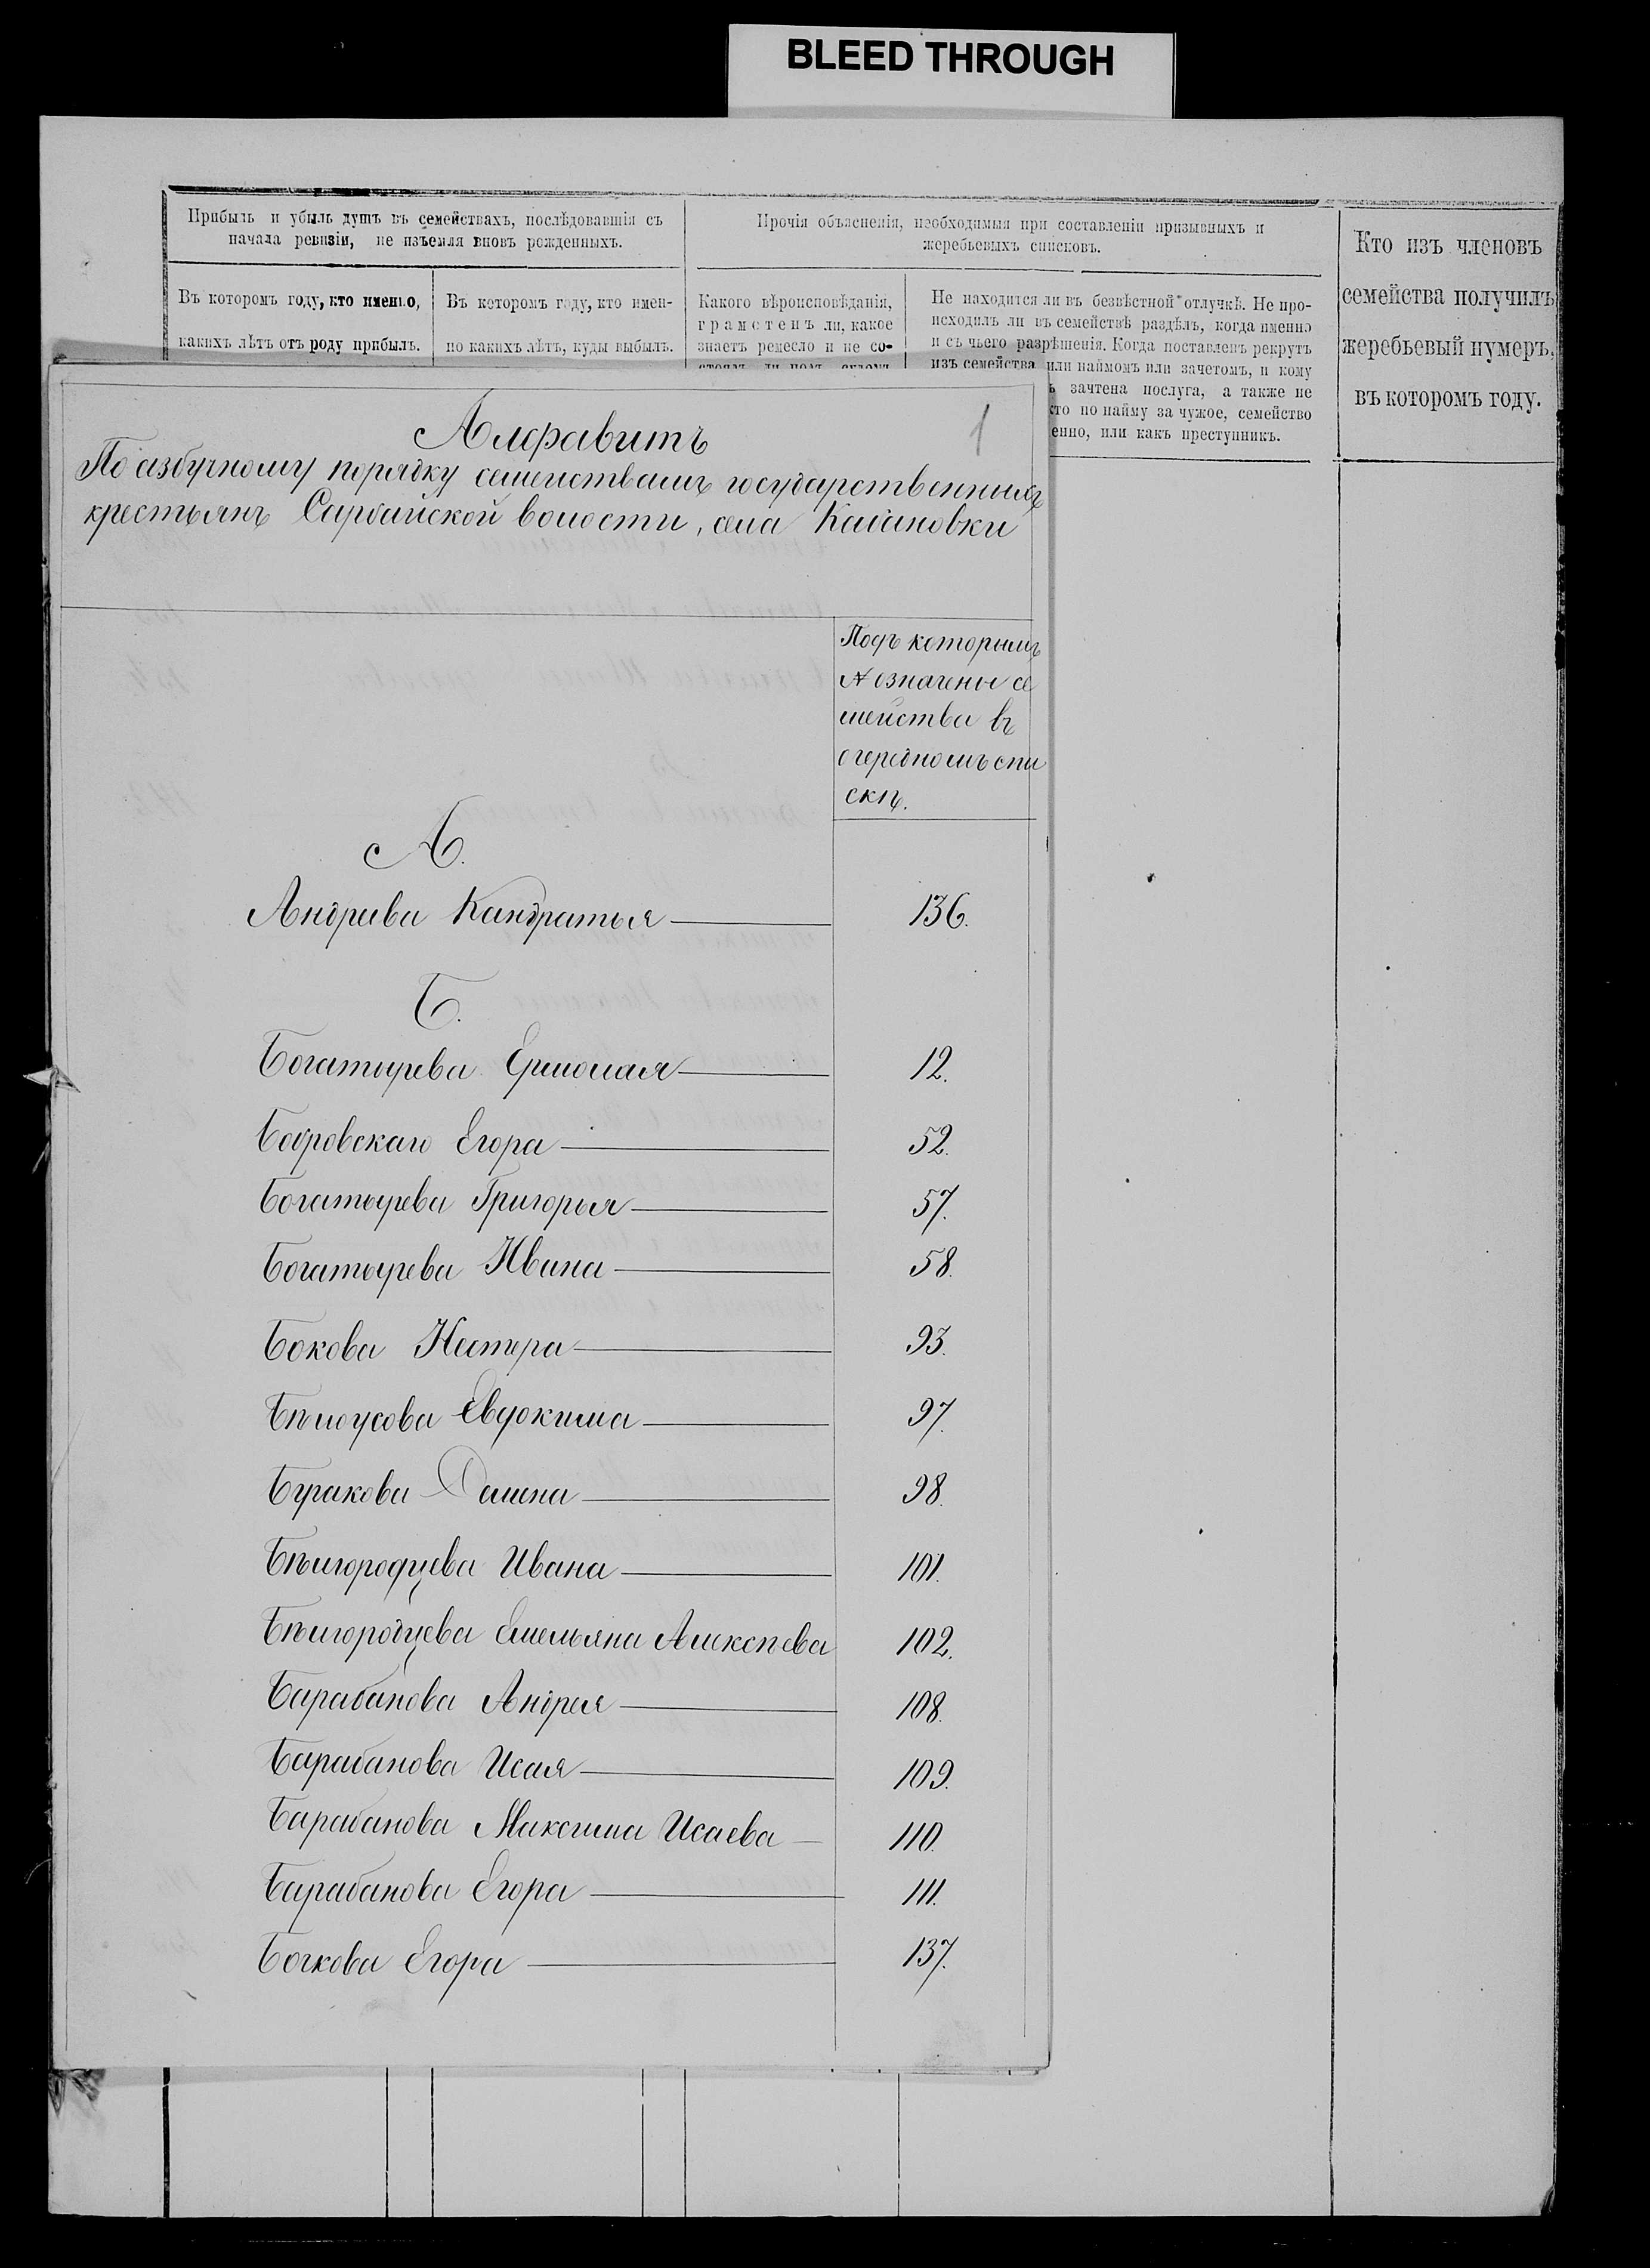 BLEED THROUGH
Прибыль и убыль душъ въ семействахъ, послѣдовавшія съ
начала ревизіи, не изъемля вновь рожденныхъ.
Прочія объясненія, необходимыя при составленіи призывныхъ и
жеребьевыхъ списковъ.
Кто изъ членовъ
семейства получилъ
жеребьевый нумеръ,
въ которомъ году.
Въ которомъ году, кто именно,
какихъ лѣтъ отъ роду прибылъ.
Въ которомъ году, кто имен-
но какихъ лѣтъ, куды выбылъ.
Какого вѣроисповѣданія,
грамотенъ ли, какое
знаетъ ремесло и не со-
Не находится ли въ безвѣстной отлучкѣ. Не про-
исходилъ ли въ семействѣ раздѣлъ, когда именно
и съ чьего разрѣшенія. Когда поставленъ рекрутъ
изъ семейства или наймомъ или зачетомъ, и кому
зачтена послуга, а также не
по найму за чужое, семейство
енно, или какъ преступникъ.
1
Алфавитъ
По азбучному порядку семействамъ государственныхъ
крестьянъ Сарбайской волости, села Кабановки
Подъ которымъ
№ означены се
мейства въ
очередномъ спи
скѣ.
А.
Андреева Кандратья 136.
Б.
Богатырева Ермолая 12.
Бобровскаго Егора 52.
Богатырева Григорья 57.
Богатырева Ивана 58.
Бокова Нестера 93.
Бѣлоусова Евдокима 97.
Буракова Демена 98.
Бѣлгородцева Ивана 101.
Бѣлгородцева Емельяна Алексѣева 102.
Барабанова Андрея 108.
Барабанова Исая 109.
Барабанова Максима Исаева 110.
Барабанова Егора 111.
Бочкова Егора 137.